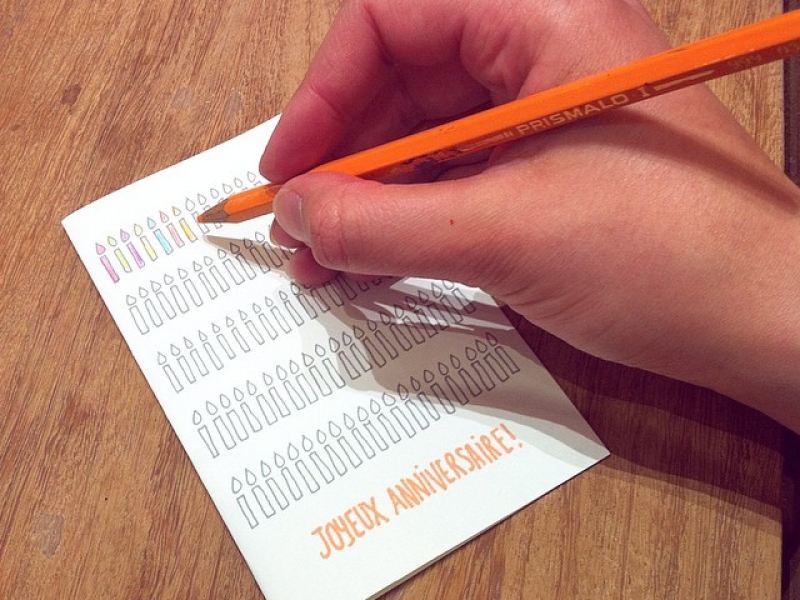 PRISMALO I
999
JOYEUX ANNIVERSAIRE!